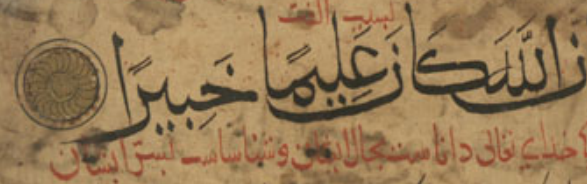 بسبب الفت
نَّ اللَّهَ كَانَ عَلِيمًا خَبِيرًا
خدای تعالی داناست بحال ایشان وشناساست بسرّ ایشان